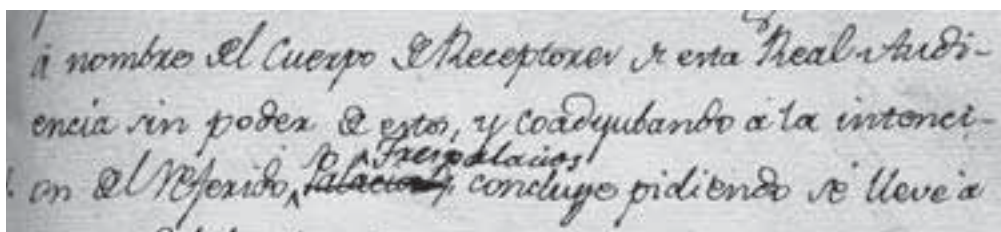 á nombre del Cuerpo de Receptores de esta Real Audi-
encia sin poder de estos, y coadyubando á la intenci-
Frespalacios
on del referido, palacios, concluye pidiendo se lleve á